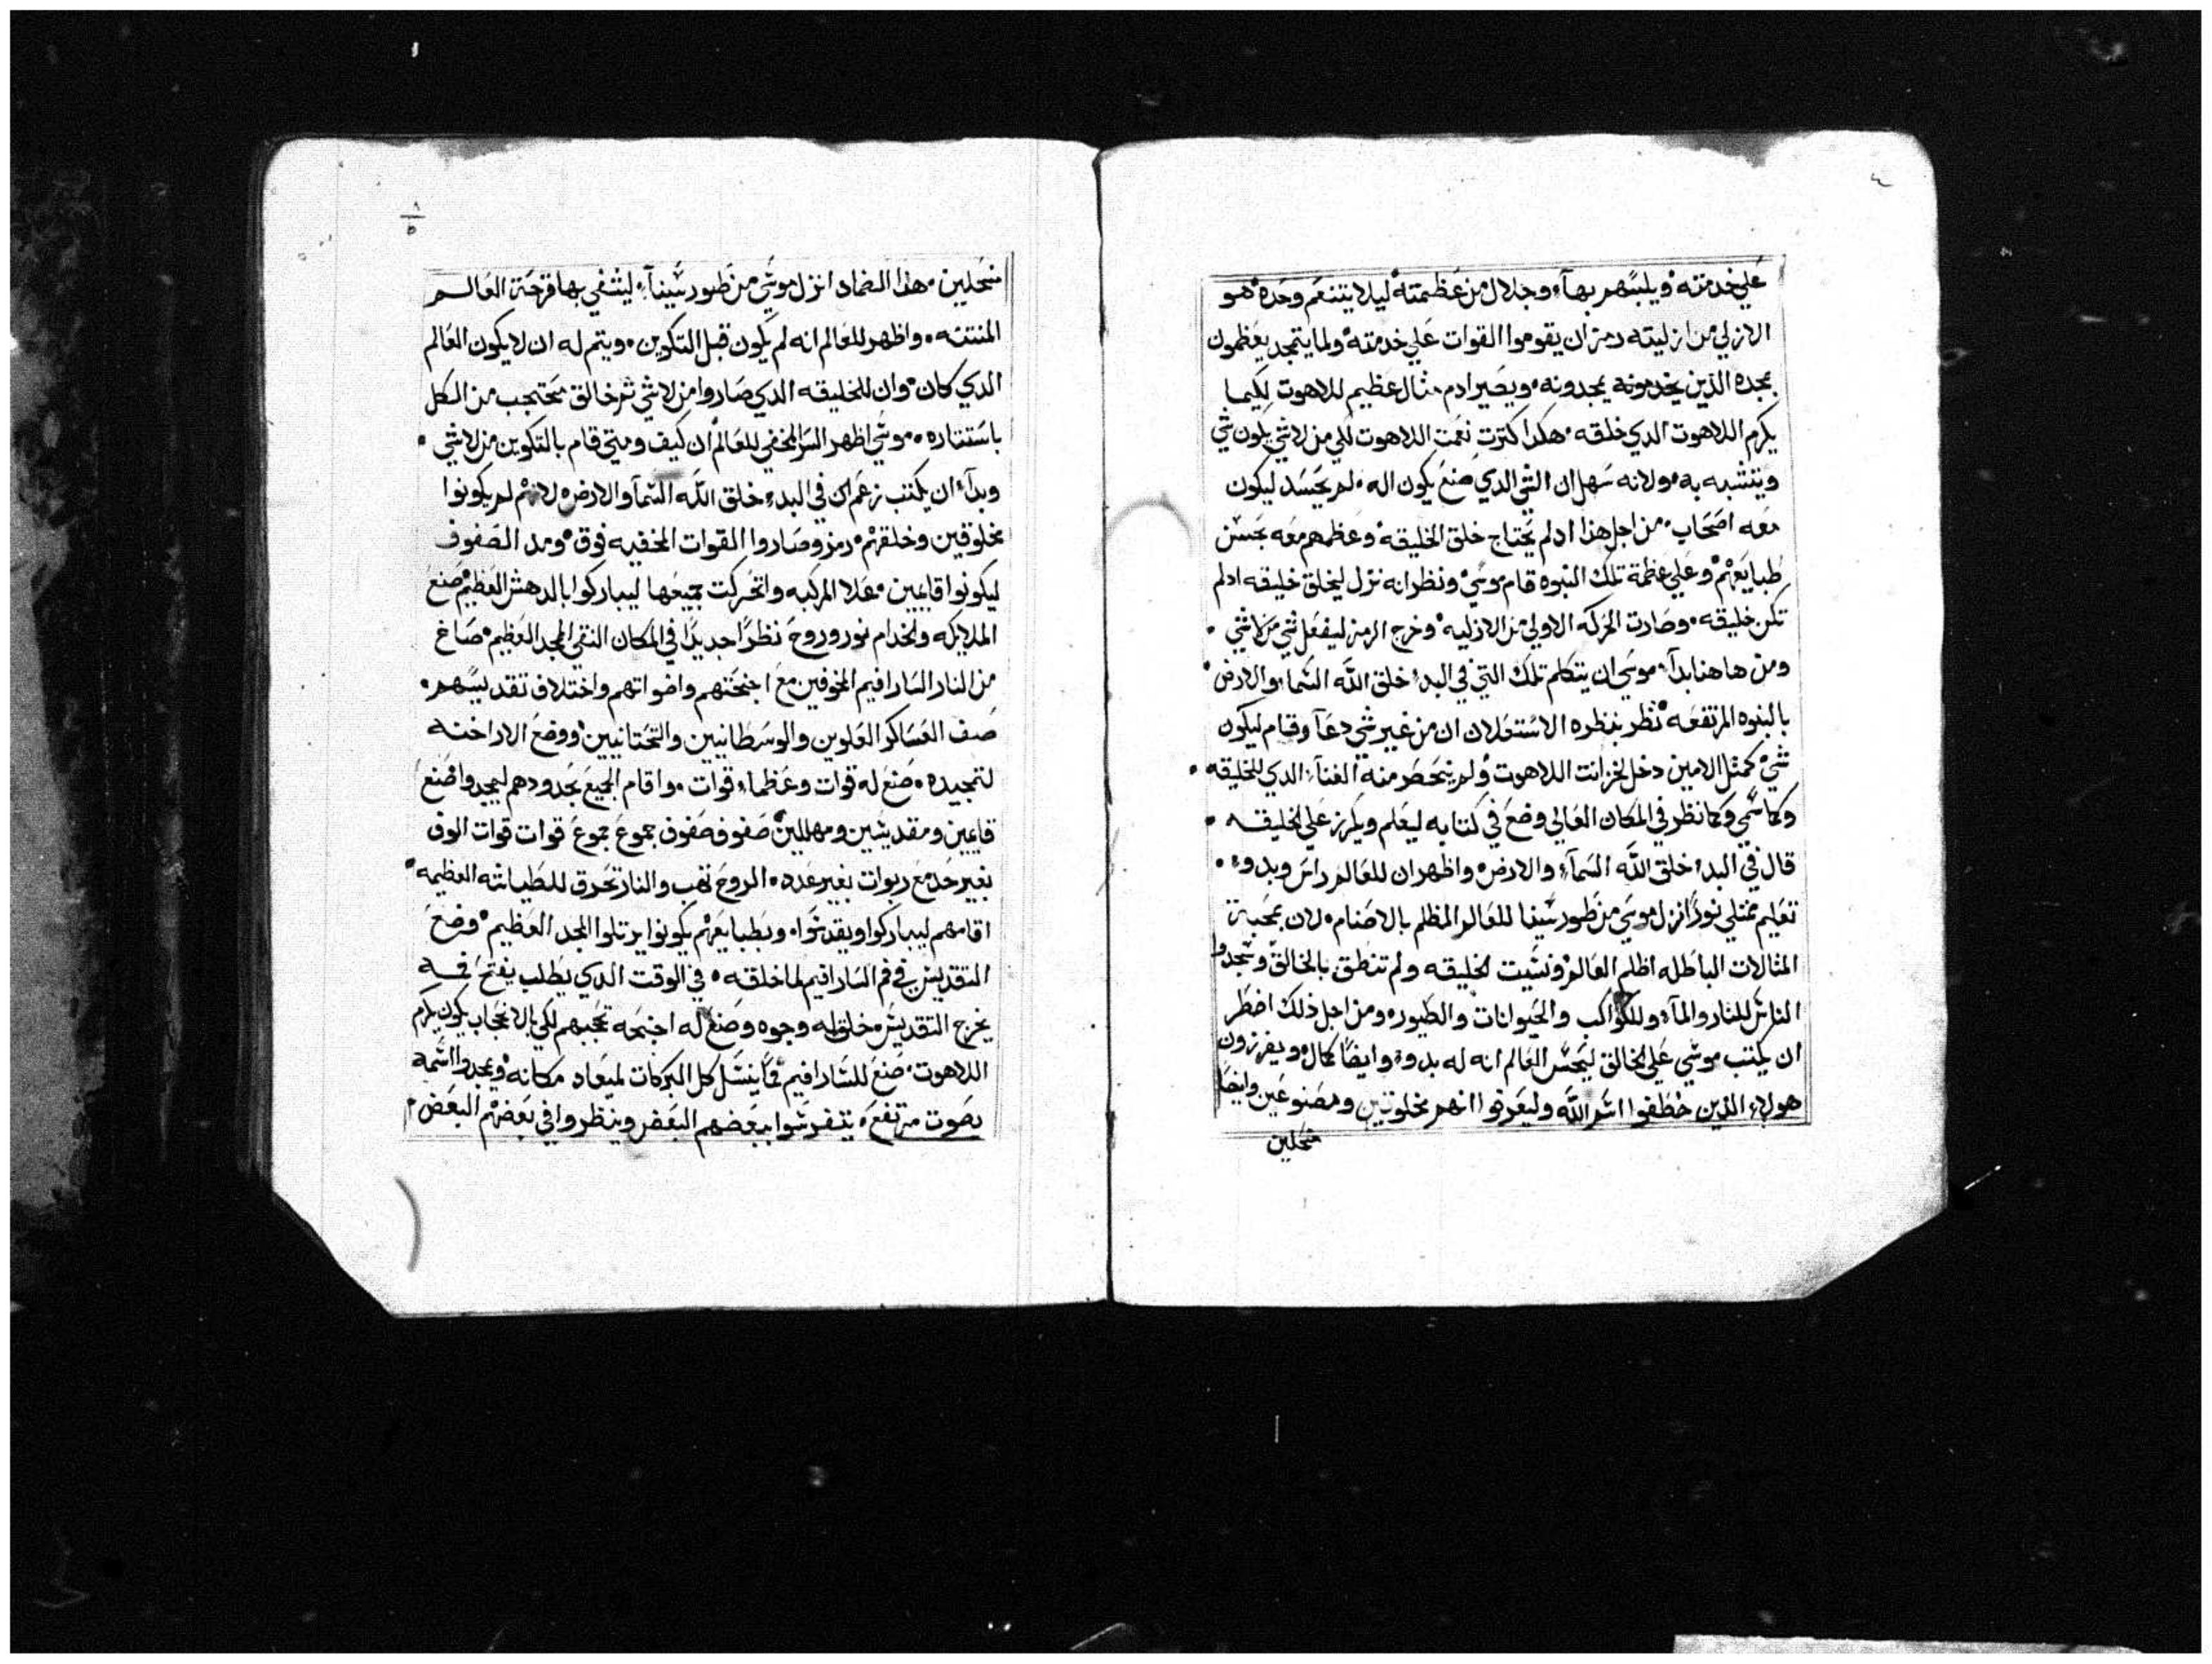 ٤
علي خدمته ويلبسهم بهآء وجلال من عظمته ليلا يتنعم وحده هو
الازلي من ازليته رمز ان يقوموا القوات علي خدمته ولما يتمجد يعظمون
بمجده الذين يخدمونه يمجدونه ويصير ادم مثال عظيم للاهوت لكيما
يكرم اللاهوت الدي خلقه هكدا كترت نعمت اللاهوت لكي من لاشي يكون شي
ويتشبه به ولانه سهل ان الشي الدي صنع يكون اله لم يحسد ليكون
معه اصحاب من اجل هذا ادلم يحتاج خلق الخليقه وعظمهم معه بحسن
طبايعهم وعلي عظمة تلك النبوه قام موسي ونظر انه نزل ليخلق خليقه ادلم
تكن خليقه وصارت الحركه الاولي من الازليه وخرج الرمز ليفعل شي من لاشي
ومن هاهنا بدآء موسي ان يتكلم تلك التي في البدء خلق الله السما والارض
بالنبوه المرتفعه نظر بنظره الاستعلان ان من غير شي دعآ وقام ليكون
شي كمثل الامين دخل لخزانت اللاهوت ولم ينحصر منه الغنآء الدي للخليقه
وكما سمي وكما نظر في المكان العالي وضع في كتابه ليعلم ويكرز علي الخليقه
قال في البدء خلق الله السمآء والارض واظهر ان للعالم راس وبدوء
تعليم ممتلي نورًا انزل موسي من طور سينا للعالم المظلم بالاصنام لان بمحبة
المثالات الباطله اظلم العالم ونسيت الخليقه ولم تنطق بالخالق وسجدوا
الناس للنار والمآء وللكواكب والحيوانات والطيور ومن اجل ذلك اضطر
ان يكتب موسي علي الخالق ليحس العالم انه له بدوء وايضًا كمال ويفرزون
هولاء الذين خطفوا اسم الله وليعرفوا انهم مخلوقين ومصنوعين وايضًا
منحلين
٨
٥
منحلين هذا الضماد انزل موسي من طور سينآء ليشفي بها قرحة العالم
المنتنه واظهر للعالم انه لم يكون قبل التكوين ويتم له ان لا يكون العالم
الدي كان وان للخليقه الدي صاروا من لاشي ثم خالق محتجب من الكل
باستتاره موسي اظهر السر المخفي للعالم ان كيف ومتي قام بالتكوين من لاشي
وبدآء ان يكتب زعم ان في البدء خلق الله السمآ والارض لانهم لم يكونوا
مخلوقين وخلقهم رمز وصاروا القوات المخفيه فوق ومد الصفوف
ليكونوا قايمين عدا المركبه واتحركت جميعها ليباركوا بالدهش العظيم صنع
الملايكه والخدام نور وروح نظرًا جديدًا في المكان النقي المجد العظيم صاغ
من النار السارافيم المخوفين مع اجنحتهم واصواتهم واختلاف تقديسهم
صف العساكر العلوين والوسطانيين والتحتانيين ووضع الاراخنه
لتمجيده صنع له قوات وعظماء قوات واقام الجميع بحدودهم ليمجدوا صنع
قايمين ومقدسين ومهللين صفوف صفوف جموع جموع قوات قوات الوف
بغير حد مع ربوات بغير عدد الروح تهب والنار تحرق للطياشه العظيمه
اقامهم ليباركوا ويقدسوا وبطبايعهم يكونوا يرتلوا المجد العظيم وضع
التقديس في فم السارافيم لما خلقه في الوقت الدي يطلب يفتح فيه
يخرج التقديس خلق له وجوه وصنع له اجنحه تحجبهم لكي بالانحجاب يكون يكرم
اللاهوت صنع للسارافيم فمًا ينسل كل البركات لميعاد مكانه ويمجدوا اسمه
بصوت مرتفع يتفرسوا ببعضهم البعض وينظروا في بعضهم البعض